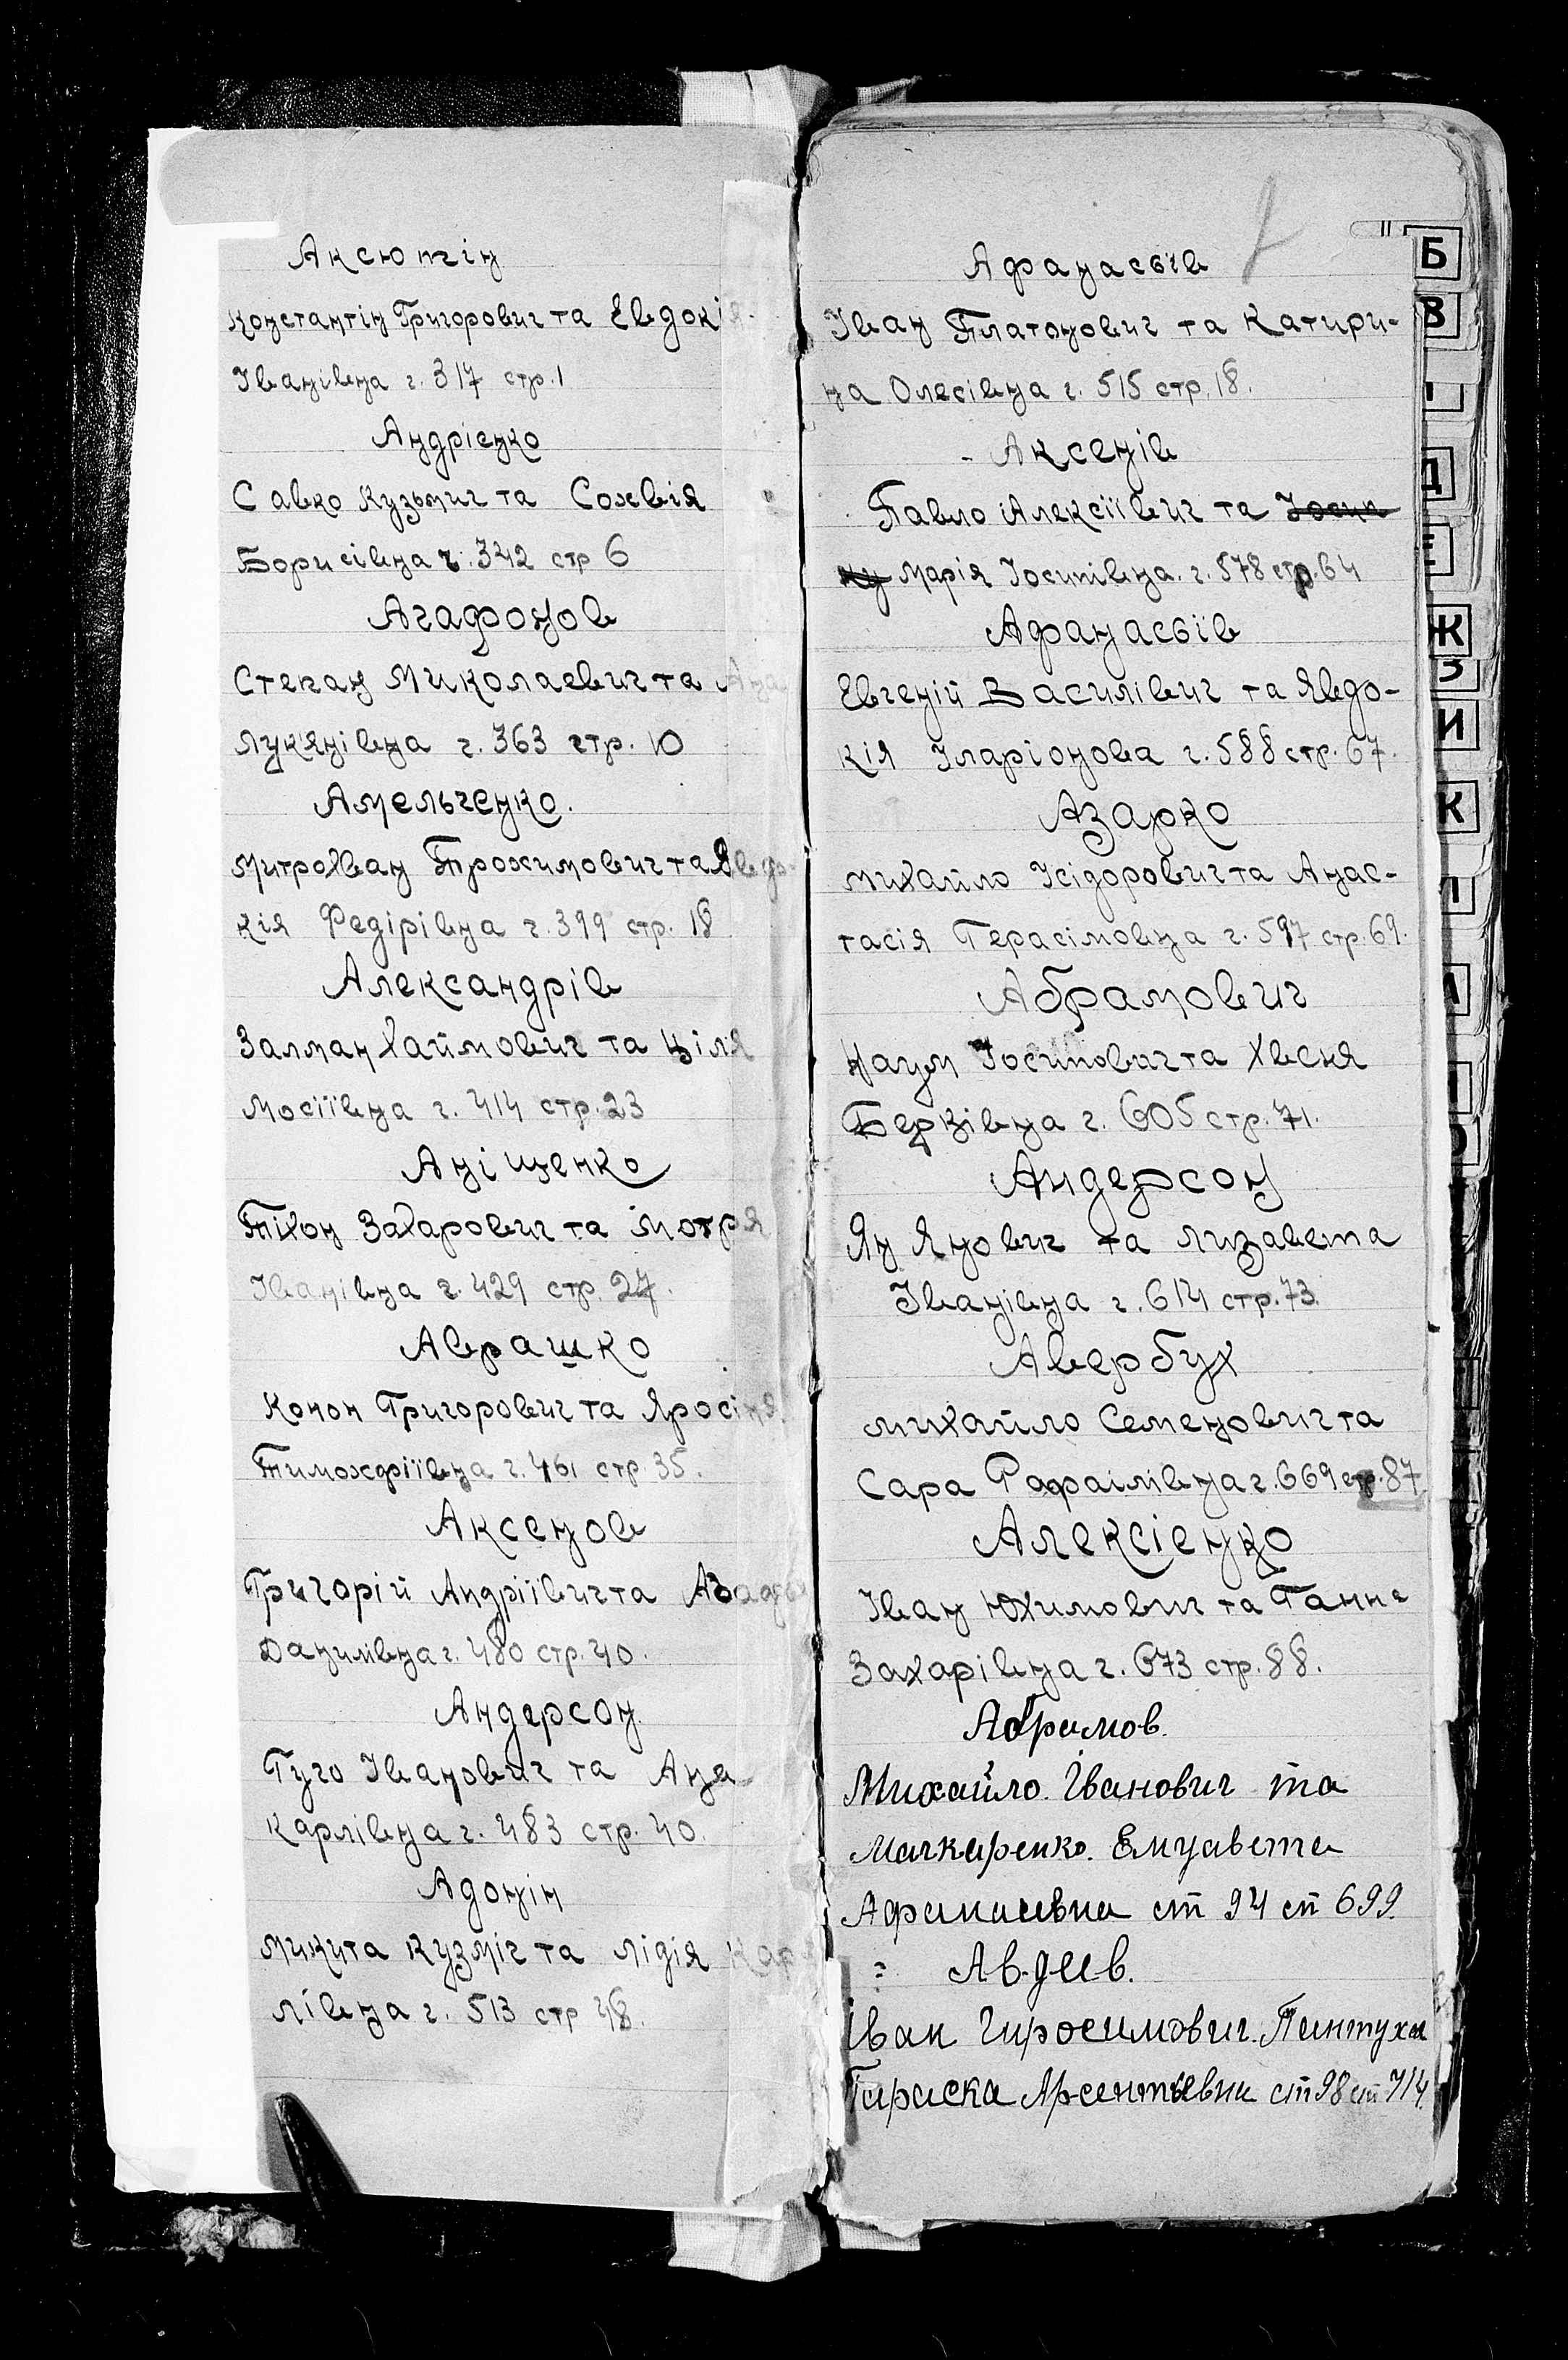 Аксютін
Константін Григорович та Евдокія
Іванівна ч. 317 стр. 1
Андрієнко
Савко Кузьмич та Сохвія
Борисівна ч. 342 стр 6
Агафонов
Степан Миколаевич та Ана
Лукянівна ч. 363 стр. 10
Амельченко.
Митрохван Трохимович та Явдо-
кія Федірівна ч. 399 стр. 18
Александрів
Залман Хаймович та Ціля
Мосіївна ч. 414 стр. 23
Аніщенко
Тіхон Захарович та Мотря
Іванівна ч. 429 стр. 27.
Аврашко
Конон Григорович та Яросіня
Тимохфіївна ч. 461 стр. 35.
Аксенов
Григорій Андріївич та
Данилівна ч. 480 стр. 40.
Андерсон.
Гуго Іванович та Ана
Карлівна ч. 483 стр. 40.
Адонін
Микита Кузміч та Лідія Кар
лівна ч. 513 стр 48.
Афанасьїв
Іван Платонович та Катири-
на Олесівна ч. 515 стр. 18.
Аксенів
Павло Алексіївич та Йосип
Марія Йосипівна. ч. 578 стр. 64
Афанасьїв
Евгеній Василівич та Явдо-
кія Іларіонова ч. 588 стр. 67.
Азарко
Михайло Ісідорович та Анас-
тасія Герасімовна ч. 597 стр. 69.
Абрамович
Наум Йосипович та Хвеня
Берзівна ч. 605 стр. 71.
Андерсон
Ян Янович та Лизавета
Іванівна ч. 614 стр. 73.
Авербух
Михайло Семенович та
Сара Рафаілівна ч. 669 стр. 87.
Алексієнко
Іван Юхимович та Ганна
Захарівна ч. 673 стр. 88.
Абрамов.
Михайло. Іванович та
Макаренко. Елизавета
Афанасивна ст 94 ст 699.
Авдеев.
Іван Гиросимович. Пантуха
Параска Арсентьевна ст 98 ст 714.
Б
В
Д
Е
Ж
З
И
К